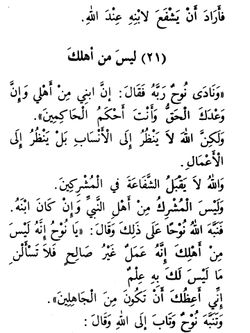 فَأَرَادَ أَنْ يَشْفَعَ لابْنِهِ عِنْدَ اللهِ.
(٢١) ليسَ من أهلكَ
«وَنَادَى نُوحٌ رَبَّهُ فَقَالَ: إِنَّ ابني مِنْ أَهْلِي وَإِنَّ
وَعْدَكَ الْحَقُّ وَأَنْتَ أَحْكَمُ الْحَاكِمِينَ».
وَلَكِنَّ اللهَ لاَ يَنْظُرُ إِلَى الأَنْسَابِ بَلْ يَنْظُرُ إِلَى
الأَعْمَالِ.
وَاللهُ لاَ يَقْبَلُ الشَّفَاعَةَ فِي الْمُشْرِكِينَ.
وَلَيْسَ الْمُشْرِكُ مِنْ أَهْلِ النَّبِيِّ وَإِنْ كَانَ ابْنَهُ.
فَنَبَّهَ اللهُ نُوحًا عَلَى ذَلِكَ وَقَالَ: «يَا نُوحُ إِنَّهُ لَيْسَ
مِنْ أَهْلِكَ إِنَّهُ عَمَلٌ غَيْرُ صَالِحٍ فَلاَ تَسْأَلْنِ
مَا لَيْسَ لَكَ بِهِ عِلْمٌ
إِنِّي أَعِظُكَ أَنْ تَكُونَ مِنَ الْجَاهِلِينَ».
وَتَنَبَّهَ نُوحٌ وَتَابَ إِلَى اللهِ وَقَالَ: